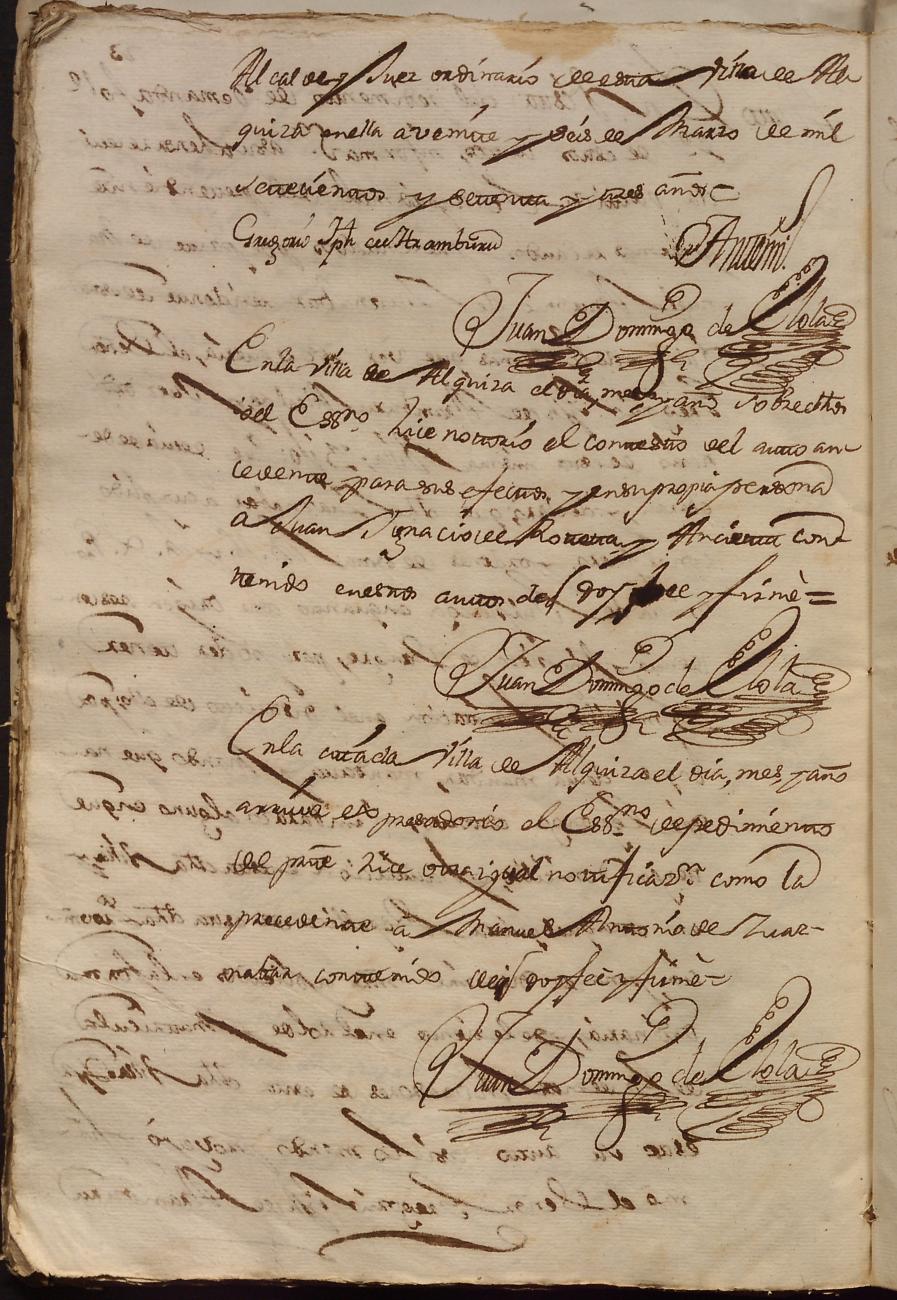 Alcalde y Juez ordinario de esta Villa de Al
quiza en ella a veinte y seis de Marzo de mil
setecientos y setenta y tres años
Gregorio Jph de Aramburu
Antemi
Juan Domingo de Olola
En la Villa de Alquiza el dia, mes, y año sobredhos
io el Essno hice notorio el contesto del auto an
cedente para sus efectos, y en su propia persona
a Juan Ignacio de Roteta y Ancieta con
tenido en estos autos de doy fee y firmè =
Juan Domingo de Olola
En la citada Villa de Alquiza el dia, mes, y año
arriva expresados io el Essno de pedimento
del pnte hice otra igual notificazn como la
precedente à Manuel Antonio de Zuar-
nabar contenido de doy feè y firmè =
Juan Domingo de Olola